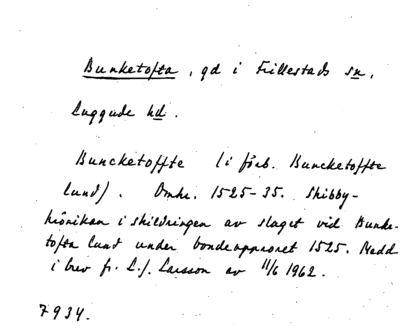 Bunketofta, gd i Fillestads sn,
Luggude hd.
Buncketoffte (i förb. Buncketoffte
lund). Omkr. 1525-35. Skibby-
krönikan i skildringen av slaget vid Bunke-
tofta lund under bondeupproret 1525. Medd
i brev fr. L.J. Larsson av 11/6 1962.
7934.